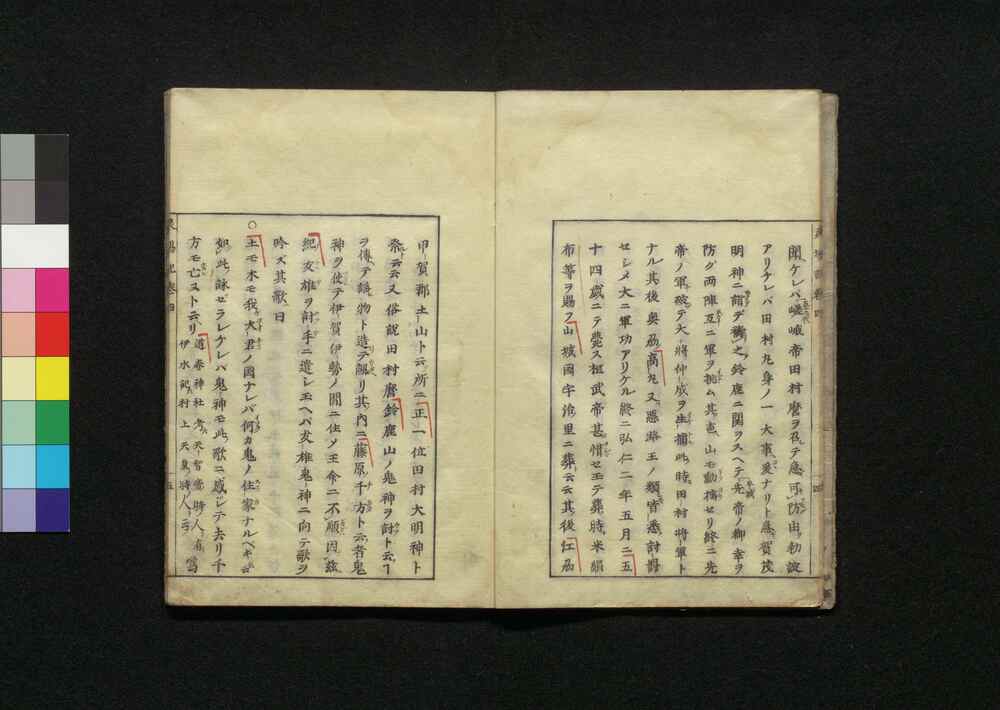 聞ケレバ嵯峨帝田村麿ヲ召テ急可防由勅諚
アリケレバ田村丸身ノ一大事爰ナリト急賀茂
明神ニ詣デ祷之鈴鹿ニ関ヲスヘテ先帝ノ御幸ヲ
防グ両陣互ニ軍ヲ挑ム其恵山モ動揺セリ終ニ先
帝ノ軍破テ大将仲成ヲ生捕此時田村将軍ト
ナル其後奥州高丸又悪路王ノ類皆悉討罸
セシメ大ニ軍功アリケル終ニ弘仁二年五月二五
十四歳ニテ薨ス桓武帝甚惜セ玉テ葬時米絹
布等ヲ賜フ山城国宇治里ニ葬云云其後江州
甲賀郡土山ト云所ニ正一位田村大明神ト
祭云云又俗説田村麿鈴鹿山ノ鬼神ヲ討ト云フ
ヲ傳テ謡物ト造テ翫リ其内ニ藤原千方ト云者鬼
神ヲ使テ伊賀伊勢ノ間ニ住ソ王命ニ不順因茲
紀友雄ヲ討手ニ遣シ玉ヘバ友雄鬼神ニ向テ歌ヲ
吟ズ其歌曰
○土モ木モ我大君ノ国ナレバ何カ鬼ノ住家ナルベキ云
如此詠ゼラレケレバ鬼神モ此歌ニ感ジテ去リ千
方モ亡スト云リ道春神社考天智帝時人有
伊水記村上天皇時人云